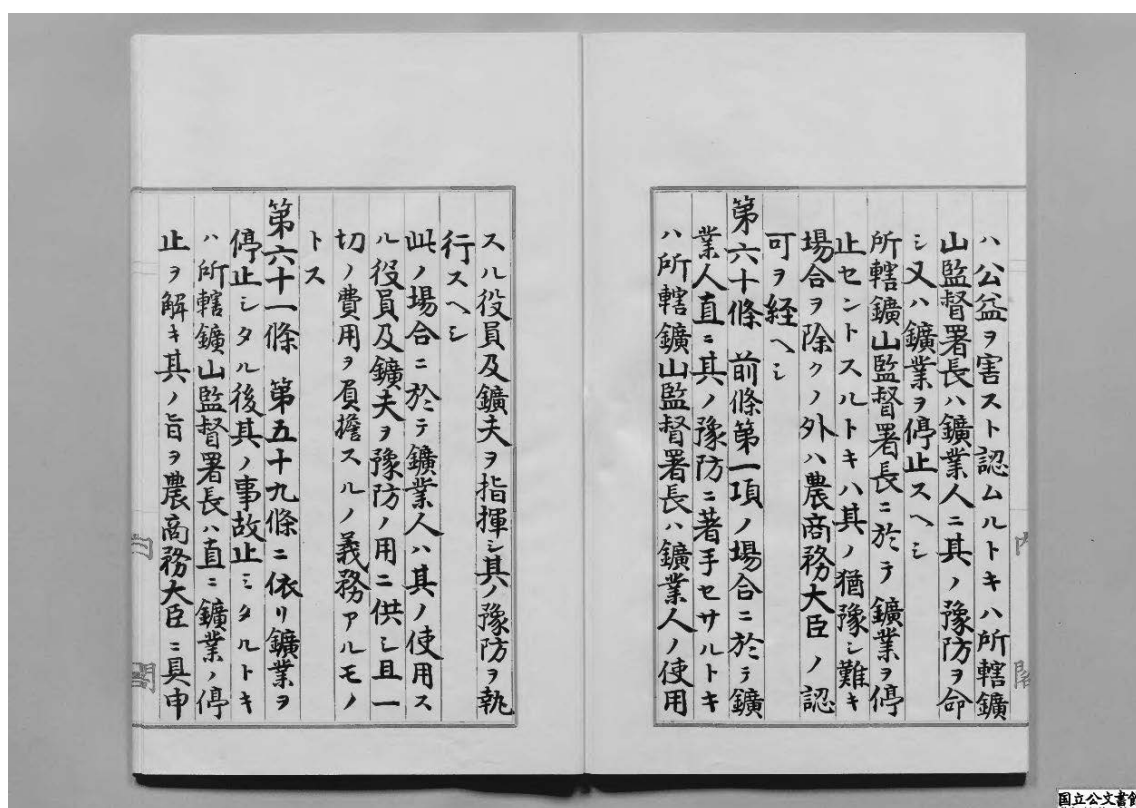 ハ公益ヲ害スト認ムルトキハ所轄鑛
山監督署長ハ鑛業人ニ其ノ豫防ヲ命
シ又ハ鑛業ヲ停止スヘシ
所轄鑛山監督署長ニ於テ鑛業ヲ停
止セントスルトキハ其ノ猶豫シ難キ
場合ヲ除クノ外ハ農商務大臣ノ認
可ヲ経ヘシ
第六十條 前條第一項ノ場合ニ於テ鑛
業人直ニ其ノ豫防ニ著手セサルトキ
ハ所轄鑛山監督署長ハ鑛業人ノ使用
スル役員及鑛夫ヲ指揮シ其ノ豫防ヲ執
行スヘシ
此ノ場合ニ於テ鑛業人ハ其ノ使用ス
ル役員及鑛夫ヲ豫防ノ用ニ供シ且一
切ノ費用ヲ負擔スルノ義務アルモノ
トス
第六十一條 第五十九條ニ依リ鑛業ヲ
停止シタル後其ノ事故止ミタルトキ
ハ所轄鑛山監督署長ハ直ニ鑛業ノ停
止ヲ解キ其ノ旨ヲ農商務大臣ニ具申
内閣
国立公文書館